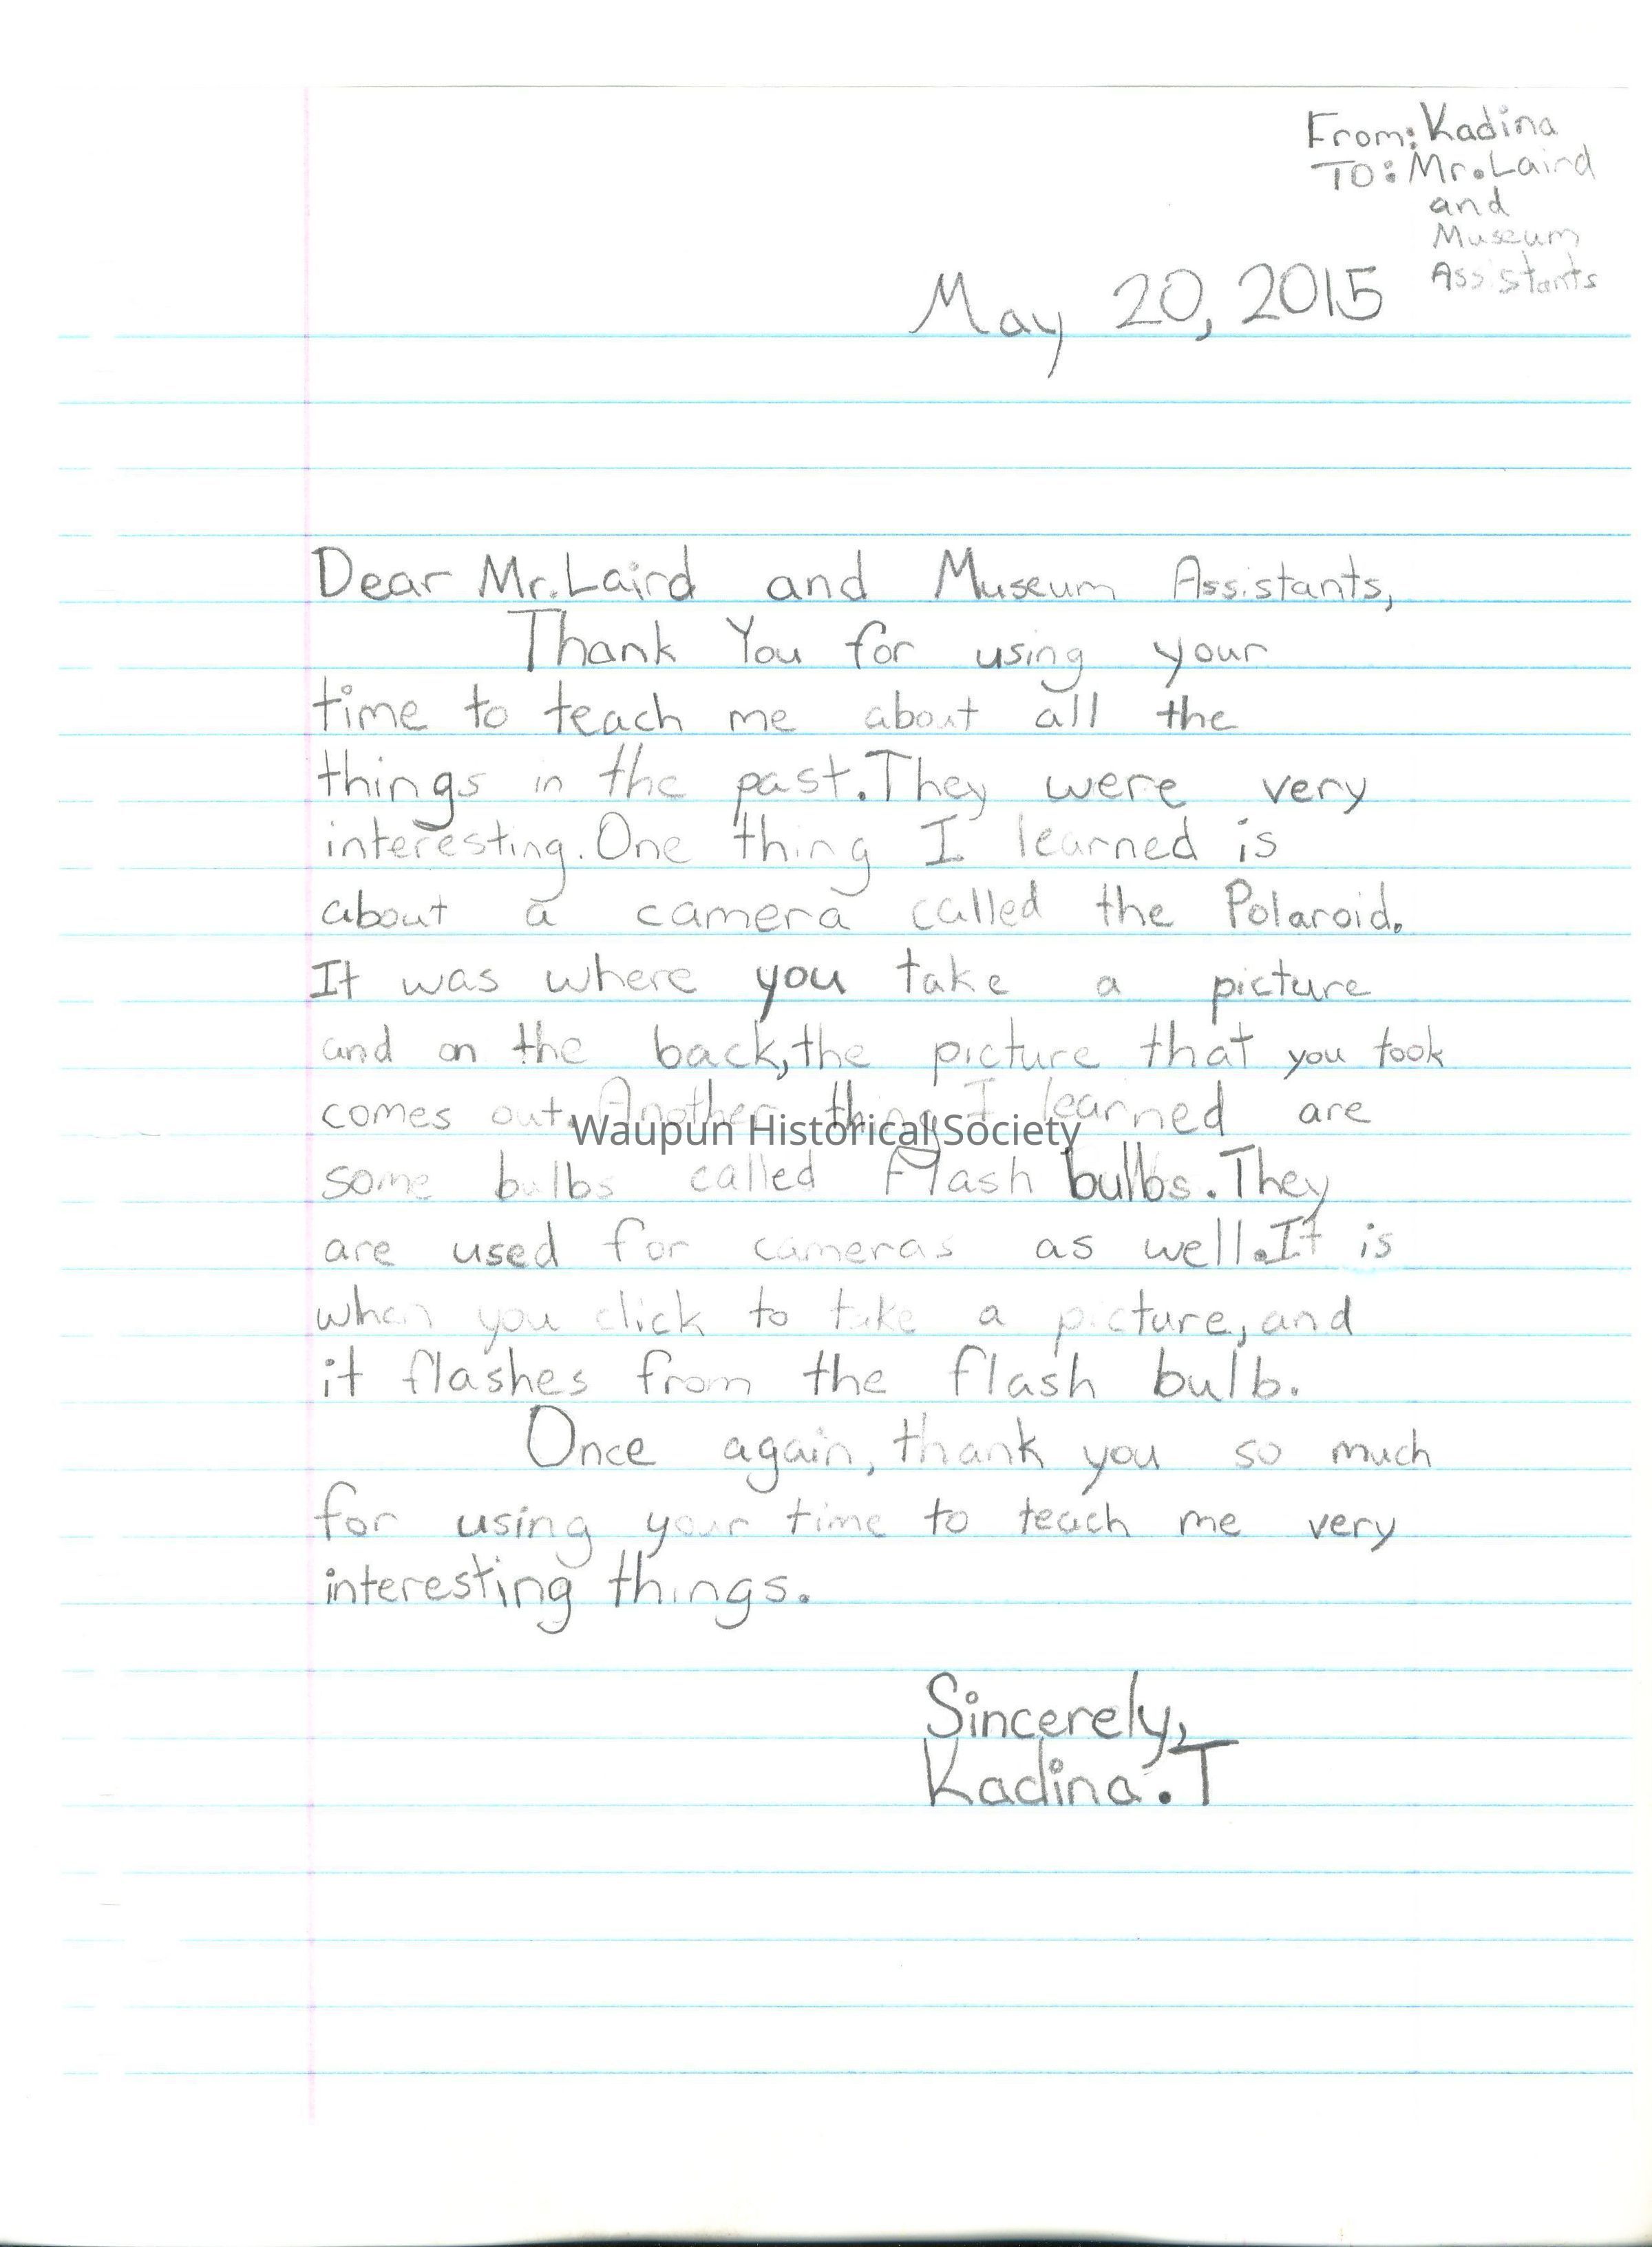 From: Kadina
To: Mr. Laird
and
Museum
Assistants
May 20, 2015
Dear Mr. Laird and Museum Assistants,
Thank You for using your
time to teach me about all the
things in the past. They were very
interesting. One thing I learned is
about a camera called the Polaroid.
It was where you take a picture
and on the back, the picture that you took
comes out. Another thing I learned are
Waupun Historical Society
some bulbs called Flash bulbs. They
are used for cameras as well. It is
when you click to take a picture, and
it flashes from the flash bulb.
Once again, thank you so much
for using your time to teach me very
interesting things.
Sincerely,
Kadina. T